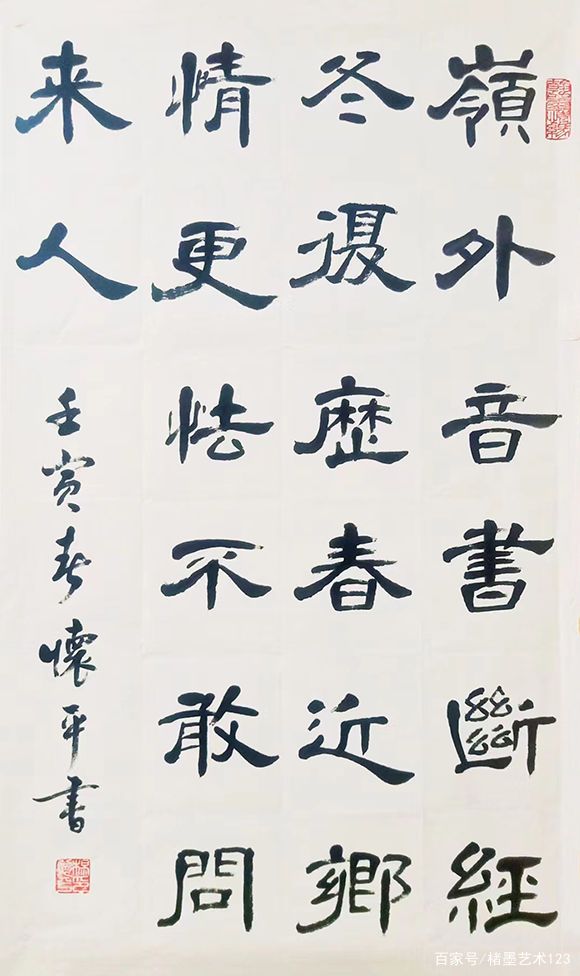 嶺外音書斷經
冬復歷春近鄉
情更怯不敢問
来人
壬寅春懷平書
百家号/楮墨艺术123